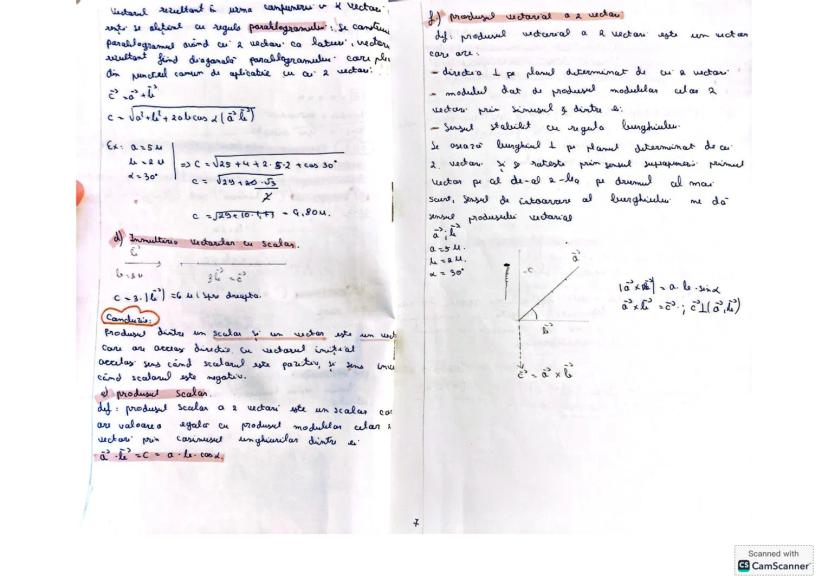 vectorul rezultant în urma compunerii a 2 vectori
se obține cu regula paralelogramului: se construi
paralelogramul având cei 2 vectori ca laturi, vectoru
rezultant fiind diagonala paralelogramului care ple
din punctul comun de aplicație cu cei 2 vectori.
c⃗ = a⃗ + b⃗
c = √a² + b² + 2ab cos α (a⃗ b⃗)
Ex: a = 5u
b = 2u
α = 30°
=> c = √25 + 4 + 2·5·2 + cos 30°
c = √29 + 20·√3
2
c = √29 + 10·1,73 = 6,80u.
d) Înmulțirea vectorilor cu scalar.
b⃗
b = 2u
3b⃗ = c⃗
c = 3·|b⃗| = 6u spre dreapta.
Concluzie:
Produsul dintre un scalar și un vector este un vect
care are aceeași direcție cu vectorul inițial
același sens când scalarul este pozitiv, și sens inve
când scalarul este negativ.
e) produsul scalar.
def: produsul scalar a 2 vectori este un scalar ca
are valoarea egală cu produsul modulelor celor 2
vectori prin cosinusul unghiurilor dintre ei
a⃗ · b⃗ = c = a · b · cos α.
f.) produsul vectorial a 2 vectori
def: produsul vectorial a 2 vectori este un vector
care are:
- direcția ⊥ pe planul determinat de cei 2 vectori
- modulul dat de produsul modulelor celor 2
vectori prin sinusul ∢ dintre ei
- Sensul stabilit cu regula burghiului.
Se așează burghiul ⊥ pe planul determinat de cei
2 vectori și se rotește prin sensul suprapunerii primului
vector pe al de-al 2-lea pe drumul cel mai
scurt, sensul de întoarcere al burghiului ne dă
sensul produsului vectorial
a⃗, b⃗
a = 5u.
b = 2u.
α = 30°
-c
a⃗
b⃗
c⃗ = a⃗ × b⃗
|a⃗ × b⃗| = a · b · sin α
a⃗ × b⃗ = c⃗ ; c⃗ ⊥ (a⃗, b⃗)
7
Scanned with
CS CamScanner